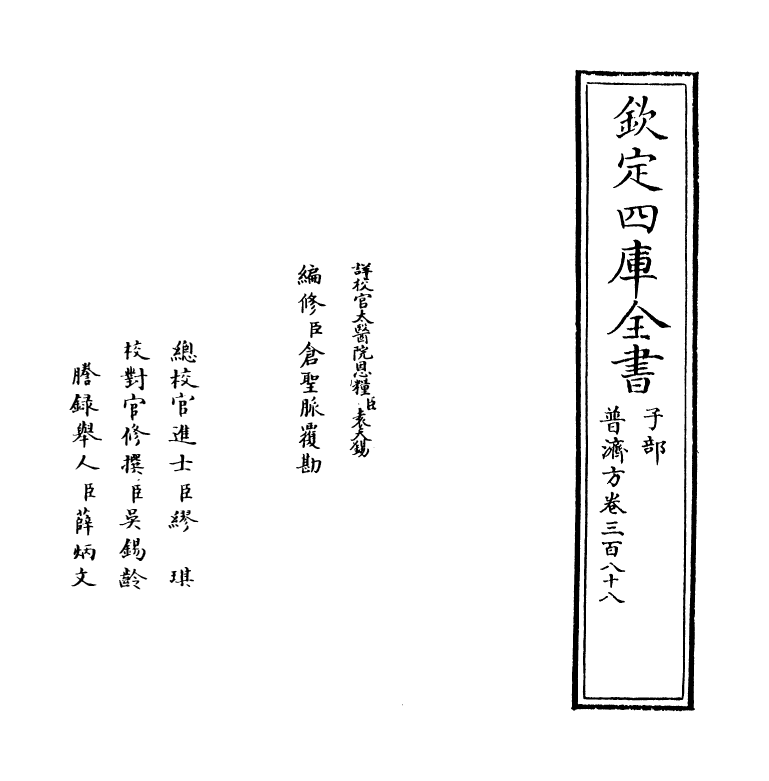 欽定四庫全書
子部
普濟方卷三百八十八
詳校官太醫院恩糧臣袁天錫
編修臣倉聖脈覆勘
總校官進士臣繆琪
校對官修撰臣吳錫齡
謄録舉人臣薛炳文